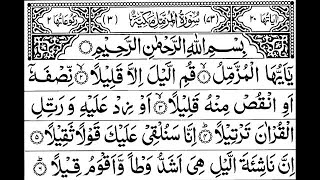 اٰیَاتُهَا ٢٠ (٧٣) سُوْرَةُ الْمُزَّمِّلِ مَكِّيَّةٌ (٣) رُكُوْعَاتُهَا ٢
بِسْمِ اللّٰهِ الرَّحْمٰنِ الرَّحِيْمِ
يٰۤاَيُّهَا الْمُزَّمِّلُ ۙ﴿١﴾ قُمِ الَّيْلَ اِلَّا قَلِيْلًا ۙ﴿٢﴾ نِّصْفَهٗۤ
اَوِ انْقُصْ مِنْهُ قَلِيْلًا ۙ﴿٣﴾ اَوْ زِدْ عَلَيْهِ وَ رَتِّلِ
الْقُرْاٰنَ تَرْتِيْلًا ؕ﴿٤﴾ اِنَّا سَنُلْقِيْ عَلَيْكَ قَوْلًا ثَقِيْلًا ﴿٥﴾
اِنَّ نَاشِئَةَ الَّيْلِ هِيَ اَشَدُّ وَطْاً وَّ اَقْوَمُ قِيْلًا ؕ﴿٦﴾